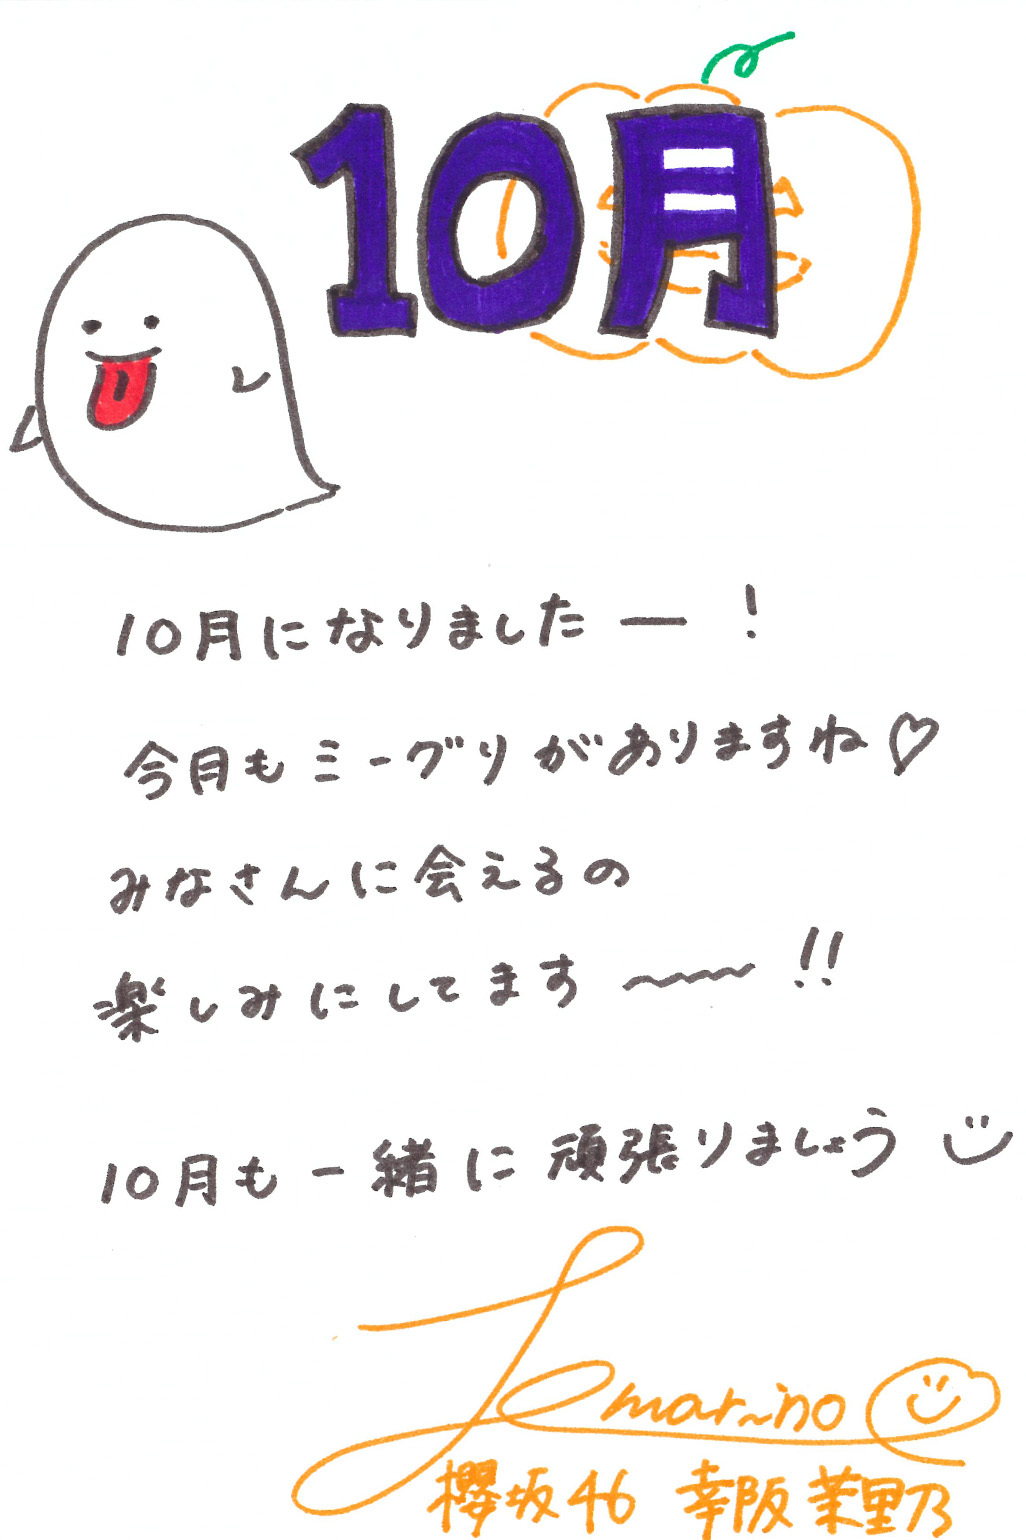 10月
10月になりましたー！
今月もミーグリがありますね♡
みなさんに会えるの
楽しみにしてます〜〜!!
10月も一緒に頑張りましょう
marino
櫻坂46 幸阪茉里乃